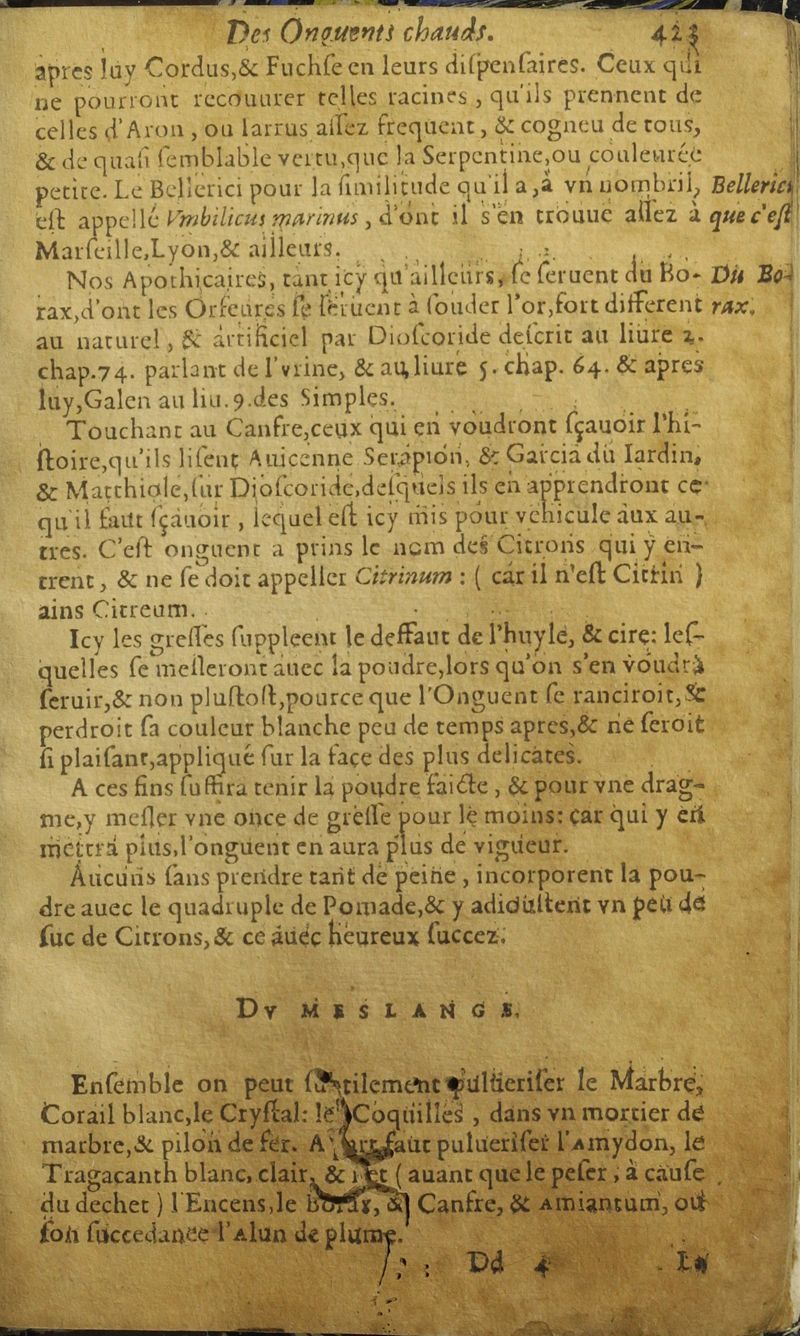 Des Onguents chauds. 423
apres luy Cordus,& Fuchſe en leurs diſpenſaires. Ceux qui
ne pourront recouurer telles racines, qu'ils prennent de
celles d'Aron, ou Iarrus aſſez frequent, & cogneu de tous,
& de quaſi ſemblable vertu,que la Serpentine,ou couleurée
petite. Le Bellerici pour la ſimilitude qu'il a,à vn nombril, Bellerici
eſt appellé Vmbilicus marinus, d'ont il s'en trouue aſſez à que c'eſt
Marſeille,Lyon,& ailleurs.
Nos Apothicaires, tant icy qu'ailleurs, ſe ſeruent du Bo- Du Bo-
rax,d'ont les Orfeures ſe ſeruent à ſouder l'or,fort different rax.
au naturel, & artificiel par Dioſcoride deſcrit au liure 2.
chap.74. parlant de l'vrine, & au liure 5. chap. 64. & apres
luy,Galen au liu.9.des Simples.
Touchant au Canfre,ceux qui en voudront ſçauoir l'hi-
ſtoire,qu'ils liſent Auicenne Serapion, & Garcia du Iardin,
& Matthiole,ſur Dioſcoride,deſquels ils en apprendront ce
qu'il faut ſçauoir, lequel eſt icy mis pour vehicule aux au-
tres. C'eſt onguent a prins le nom des Citrons qui y en-
trent, & ne ſe doit appeller Citrinum : ( car il n'eſt Citrin )
ains Citreum.
Icy les greſſes ſuppleent le deffaut de l'huyle, & cire: leſ-
quelles ſe meſleront auec la poudre,lors qu'on s'en voudra
ſeruir,& non pluſtoſt,pource que l'Onguent ſe ranciroit,&
perdroit ſa couleur blanche peu de temps apres,& ne ſeroit
ſi plaiſant,appliqué ſur la face des plus delicates.
A ces fins ſuffira tenir la poudre faicte, & pour vne drag-
me,y meſler vne once de greſſe pour le moins: car qui y en
mettra plus,l'onguent en aura plus de vigueur.
Aucuns ſans prendre tant de peine, incorporent la pou-
dre auec le quadruple de Pomade,& y adiouſtent vn peu de
ſuc de Citrons,& ce auec heureux ſuccez.
DV MESLANGE.
Enſemble on peut ſubtilement puluerifer le Marbre,
Corail blanc,le Cryſtal: les Coquilles, dans vn mortier de
marbre,& pilon de fer. A part faut puluerifer l'Amydon, le
Tragacanth blanc, clair, & net ( auant que le peſer, à cauſe
du dechet ) l'Encens,le Borax, & Canfre, & Amiantum, ou
ſon ſuccedanee l'Alun de plume.
Dd 4